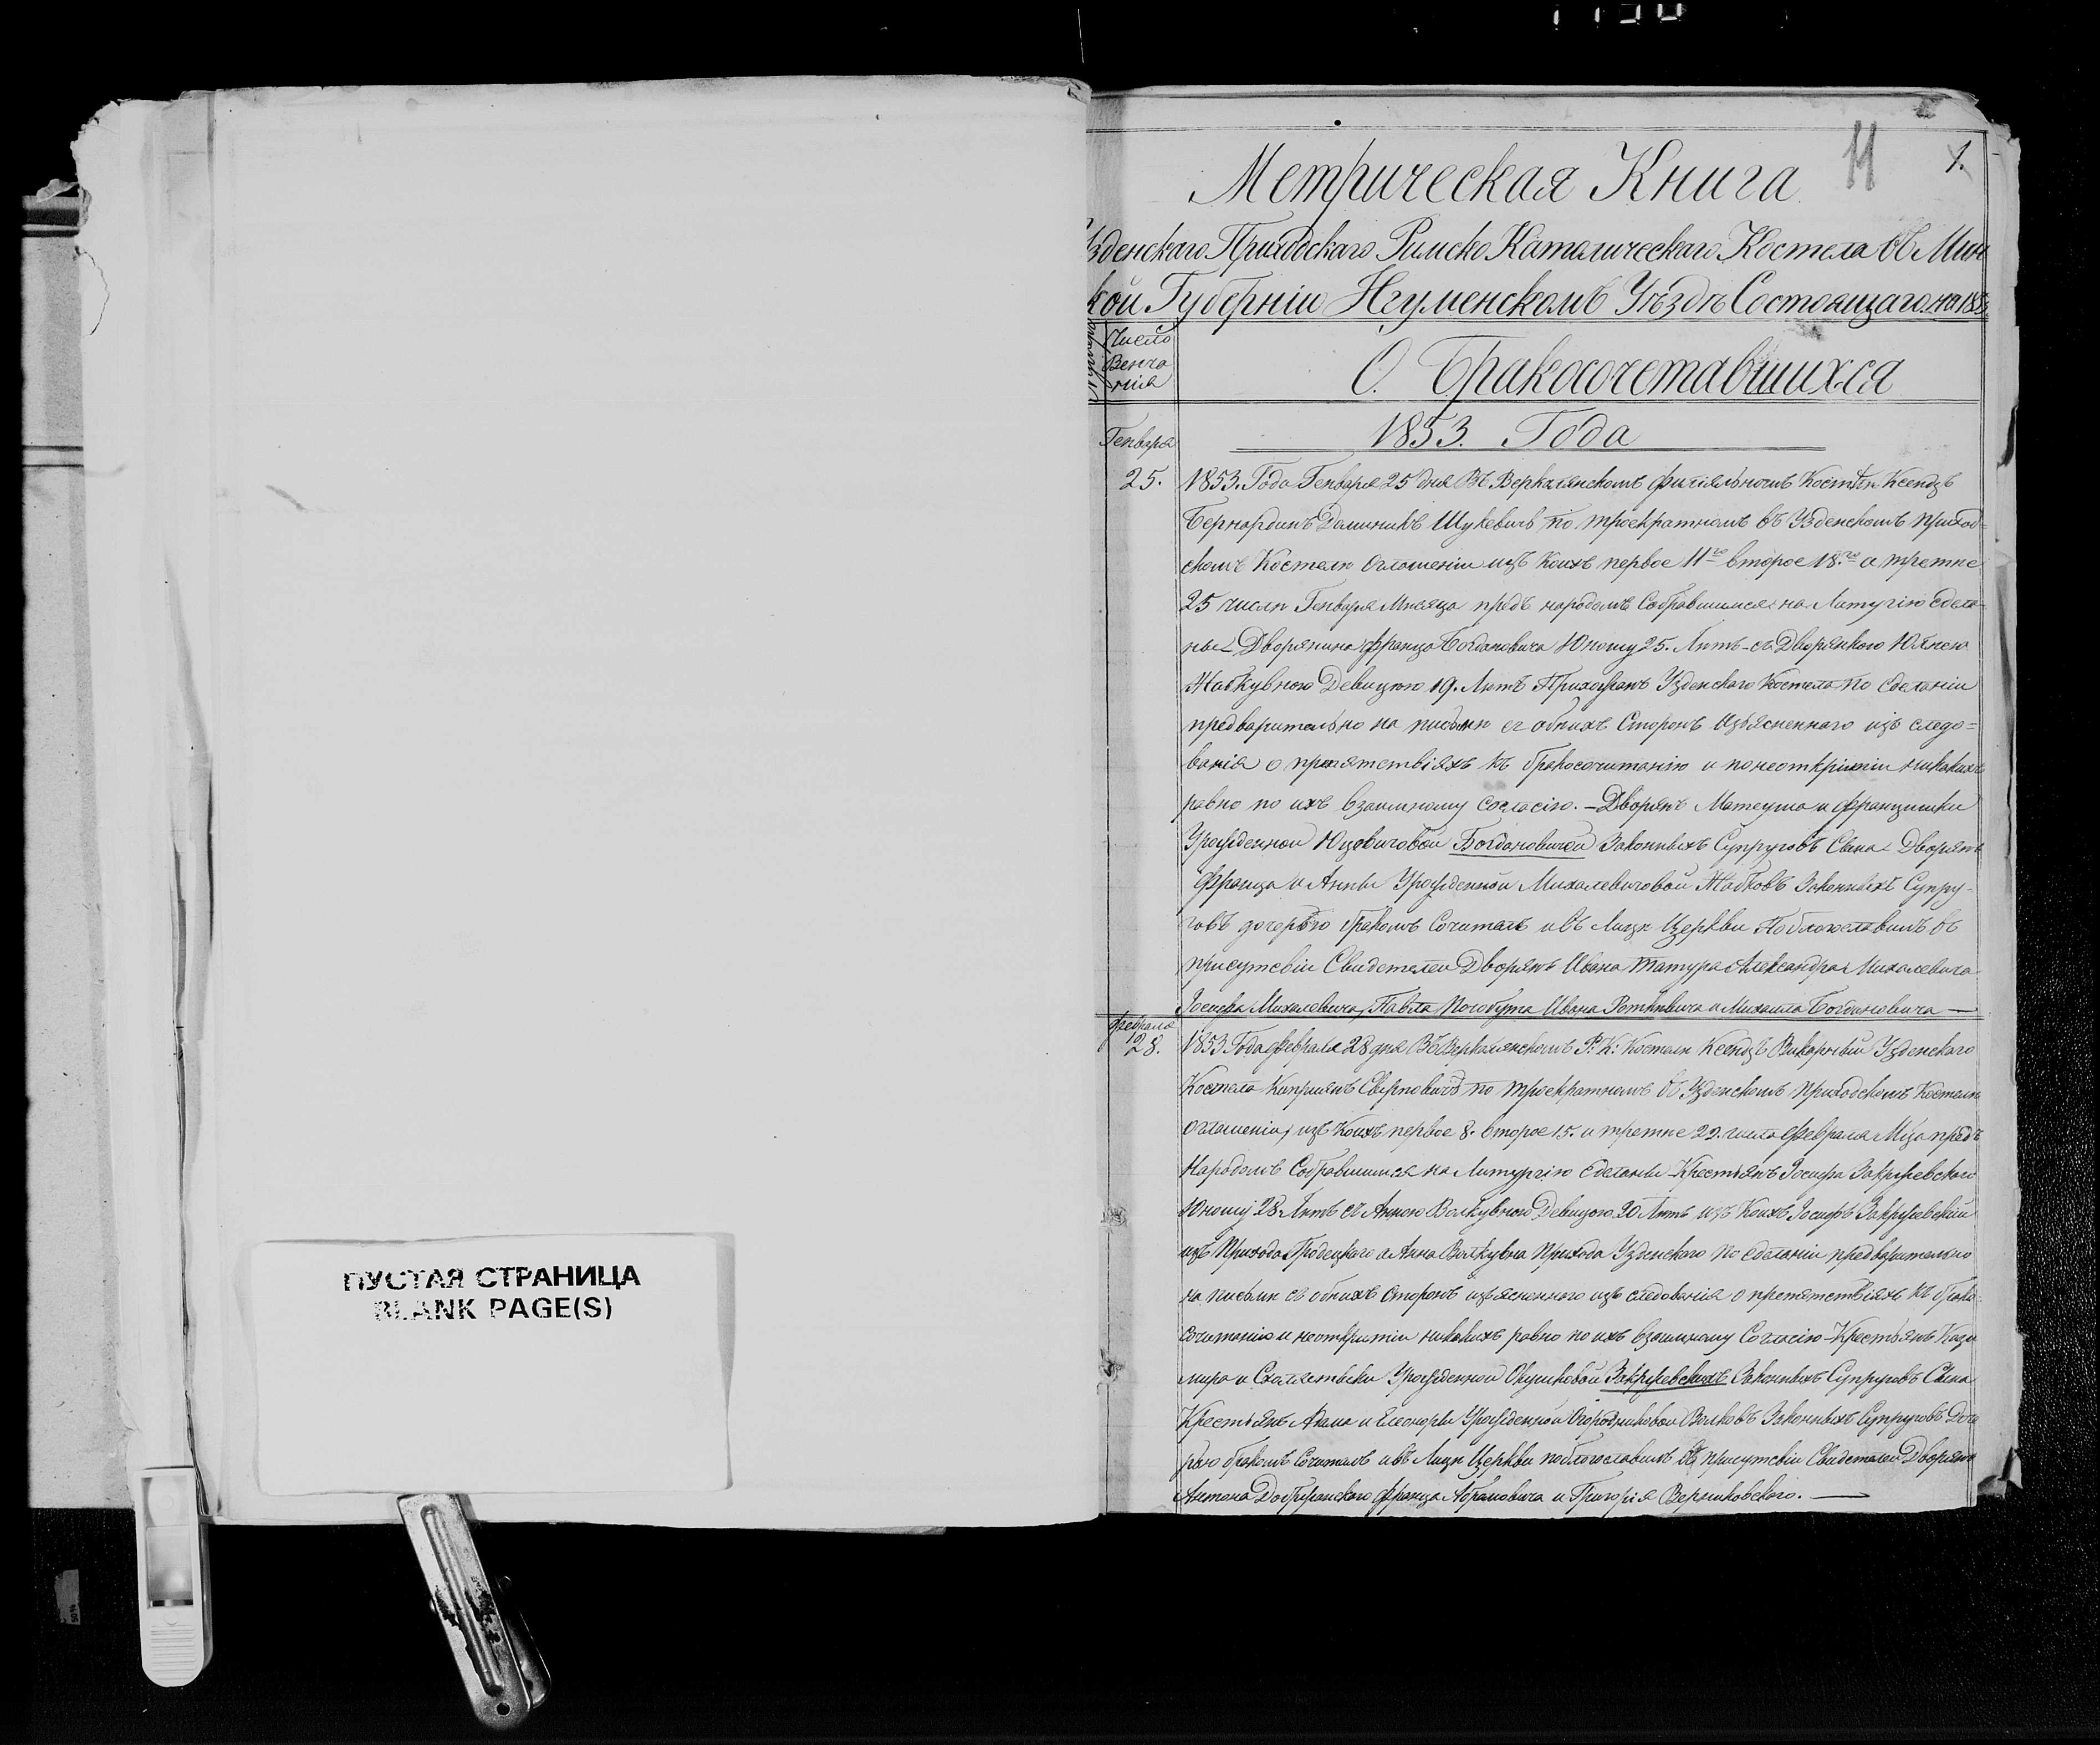 ПУСТАЯ СТРАНИЦА
BLANK PAGE(S)
11 1.
Метрическая Книга
Узденскаго Приходскаго Римско Католическаго Костела въ Мин
кой Губерніи Игуменскомъ Уѣздѣ Состоящаго на 185
Число
Венча
нія
О. Бракосочетавшихся
1853. Года
Генваря
25.
1853. Года Генваря 25 дня Въ Веркалянскомъ филіяльномъ Костѣлѣ Ксендзъ
Бернардинъ Даминикъ Шукевичъ по троекратномъ въ Узденскомъ приход=
скомъ Костелѣ Оглошеніи изъ Коихъ первое 11го второе 18.го а третие
25 числѣ Генваря Мѣсяца предъ народомъ Собравшимся на Литургію сдела=
ны Дворянина Франца Богдановича Юношу 25. Лѣтъ съ Дворянкою Юлянею
Жабкувною Девицою 19. Лѣтъ Прихожанъ Узденскаго Костела по Сделаніи
предварительно на письмѣ съ обѣихъ Сторонъ Изъясненнаго изъ следо=
ванія о препятствіяхъ къ бракосочитанію и по неоткрытіи никакихъ
равно по ихъ взаимному Согласію. — Дворянъ Матеуша и Францишки
Урожденной Юцевичовой Богдановичей Законныхъ Супруговъ Сына Дворянъ
Франца и Анны Урожденной Михалевичовой Жабковъ Законныхъ Супру-
говъ дочерью бракомъ Сочиталъ и въ Лицѣ Церкви Поблагославилъ въ
присутсвіи Свидетелей Дворянъ Ивана Татура Александра Михалевича
Іосифа Михалевича, Павла Ивана и Михаила Богдановича —
Февраля
28.
1853 Года Февраля 28 дня Въ Веркалянскомъ Р: К: Костелѣ Ксендзъ Викарный Узденскаго
Костела Кипріянъ по троекратномъ въ Узденскомъ приходскомъ Костелѣ
Оглошеніи, изъ Коихъ первое 8. второе 15. и третие 22. числа Февраля Мца предъ
Народомъ Собравшимся на Литургію Сделаны Крестьянъ Іосифа Закржевскаго
Юношу 28 Лѣтъ съ Анною Волкувною Девицою 20 Лѣтъ изъ Коихъ Іосифъ Закржевскій
изъ Прихода а Анна Волкувна Прихода Узденскаго по Сделаніи предварительно
на письмѣ съ обѣихъ Сторонъ изъясненнаго изъ следованія о препятствіяхъ къ брако-
сочитанію и неоткрытіи никакихъ равно по ихъ взаимному Согласію — Крестьянъ Кази
мира и Схолястыки Урожденной Закржевскихъ Законныхъ Супруговъ Сына
Крестьянъ Адама и Елеоноры Урожденной Огородниковой Волковъ Законныхъ Супруговъ Доче
рью бракомъ Сочиталъ и въ Лицѣ Церкви поблагославилъ въ присутсвіи Свидетелей Дворянъ
Антона Франца Абрамовича и Григорія Верниковскаго. —